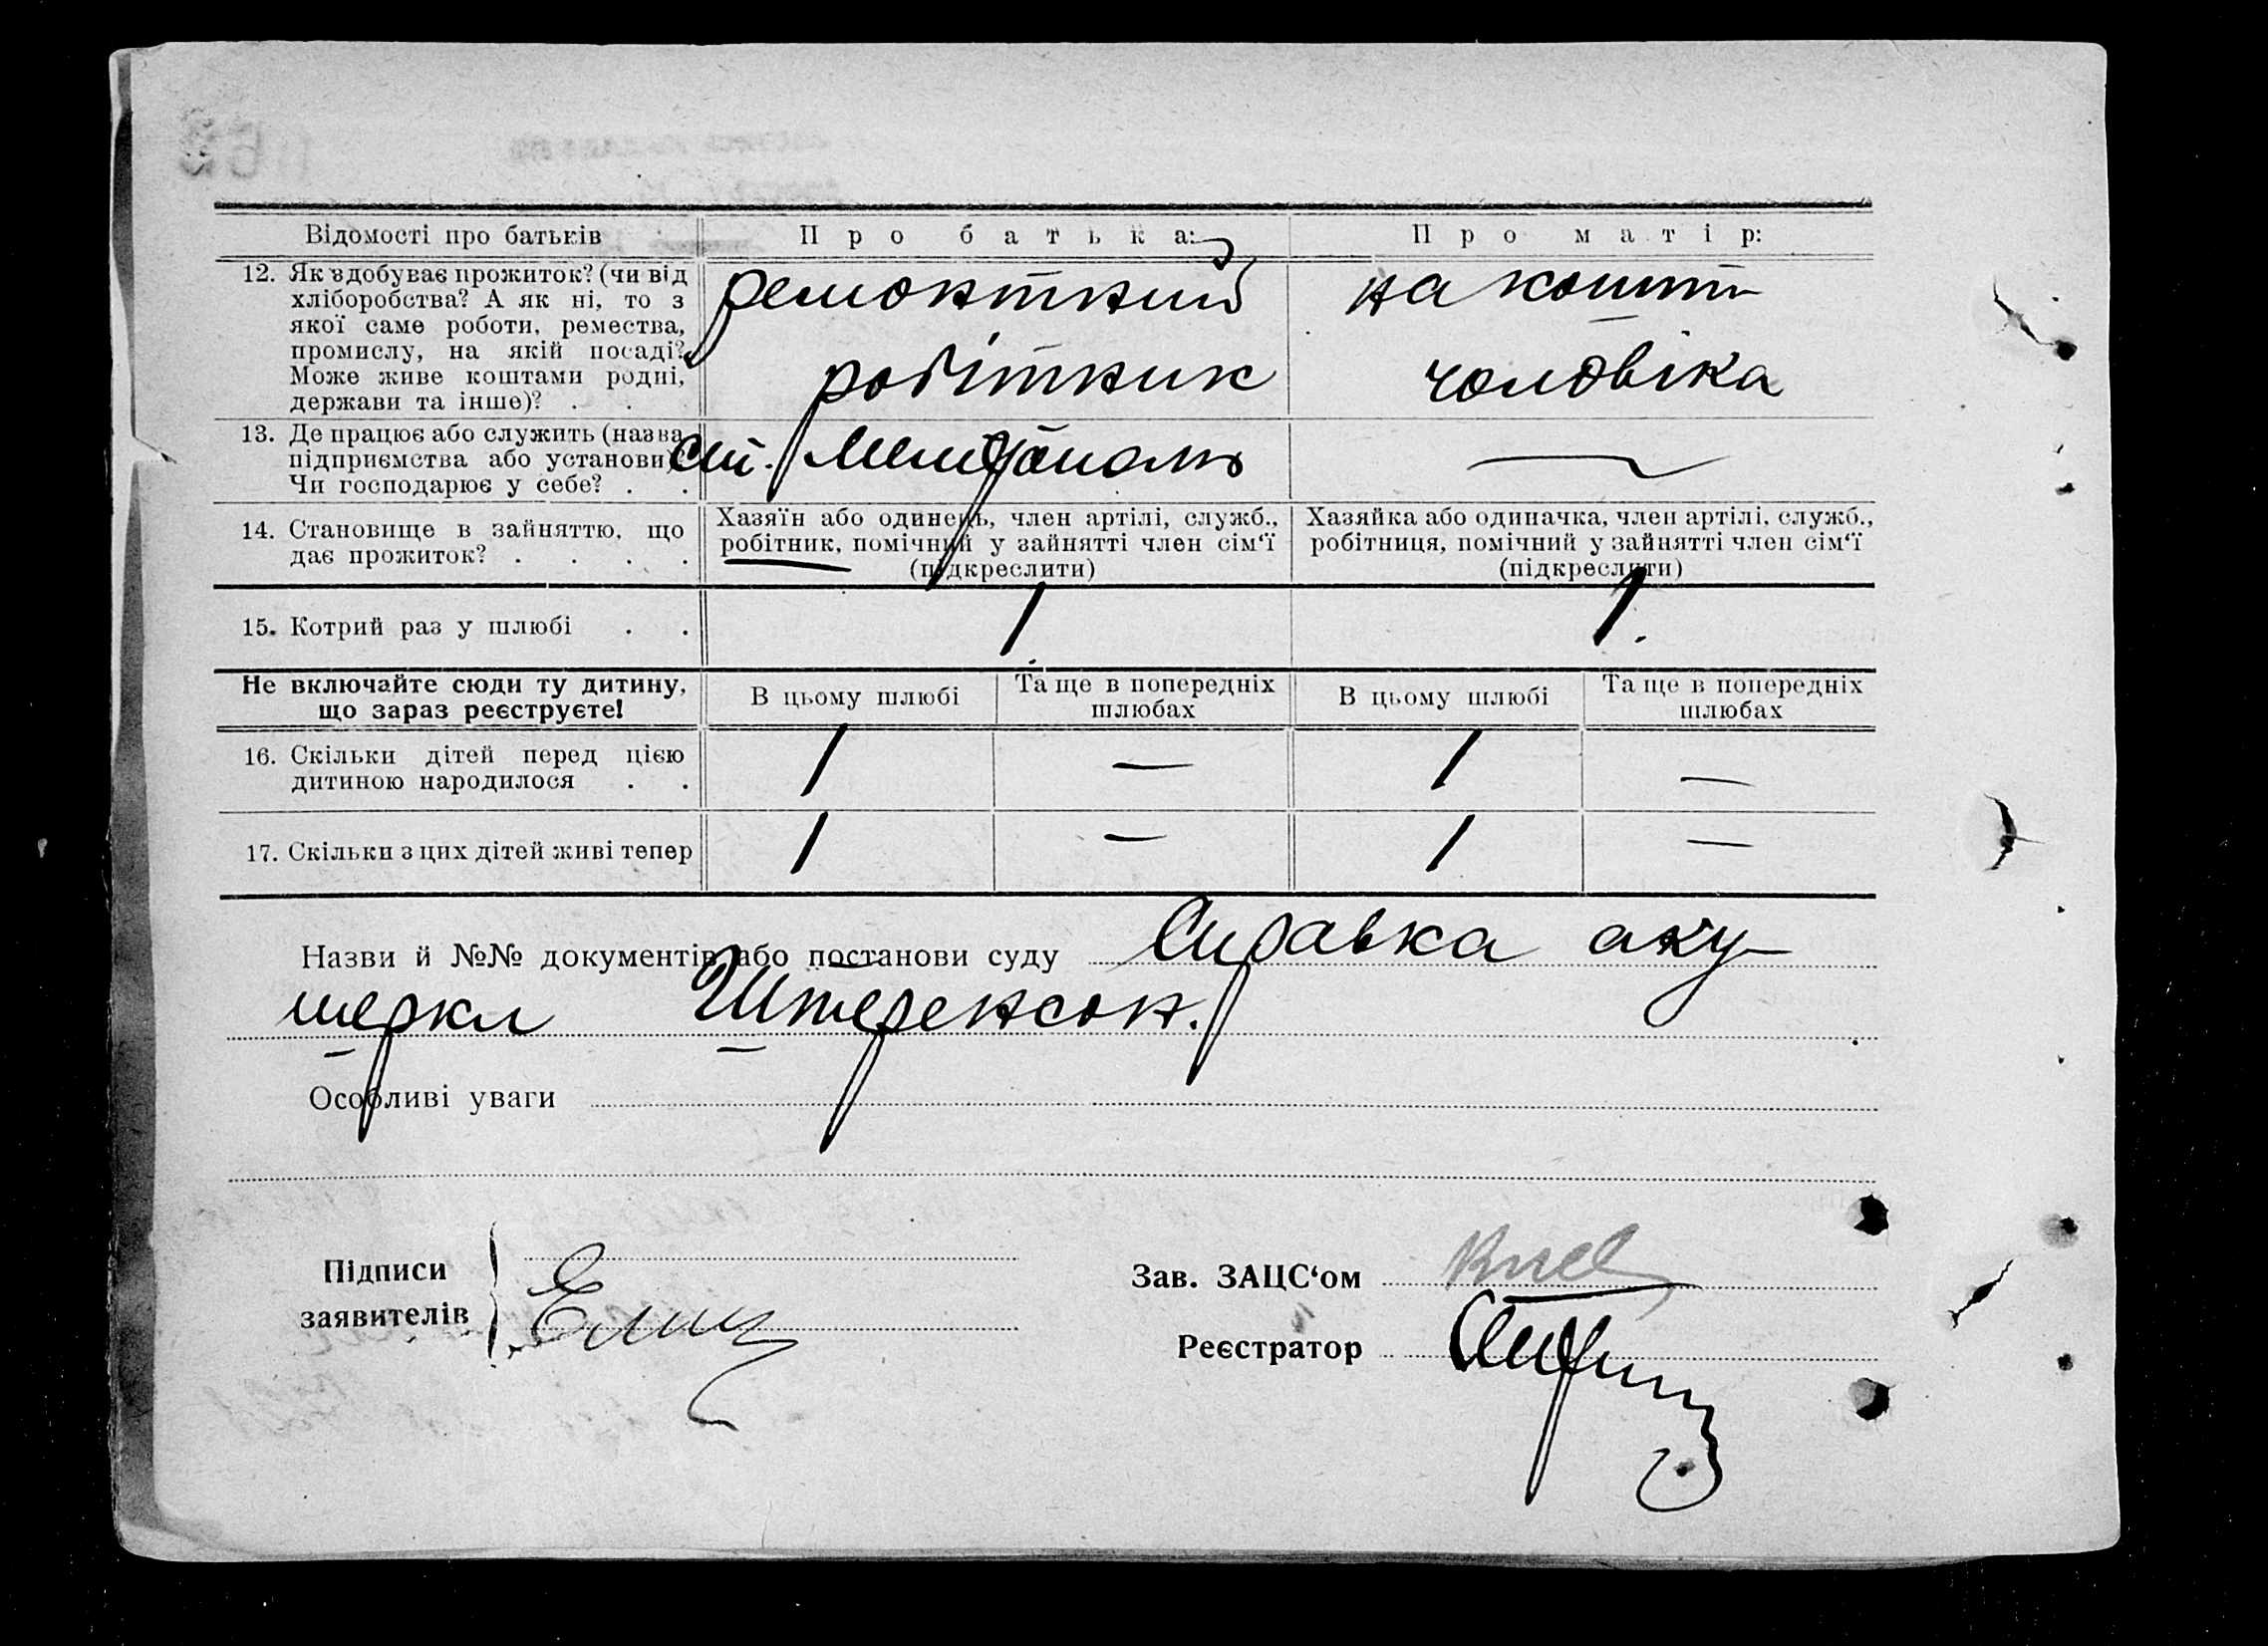 Відомості про батьків
Про батька:
Про матір:
12. Як здобуває прожиток? (чи від
хліборобства? А як ні, то з
якої саме роботи, ремества,
промислу, на якій посаді?
Може живе коштами родні,
держави та інше)? . .
ремонтний
робітник
на кошти
чоловіка
13. Де працює або служить (назва
підприємства або установи)?
Чи господарює у себе? . .
ст. Мелітополь
—
14. Становище в зайняттю, що
дає прожиток? . . . .
Хазяїн або одинець, член артілі, служб.,
робітник, помічний у зайнятті член сім'ї
(підкреслити)
Хазяйка або одиначка, член артілі, служб.,
робітниця, помічний у зайнятті член сім'ї
(підкреслити)
15. Котрий раз у шлюбі . .
1
1.
Не включайте сюди ту дитину,
що зараз реєструєте!
В цьому шлюбі
Та ще в попередніх
шлюбах
В цьому шлюбі
Та ще в попередніх
шлюбах
16. Скільки дітей перед цією
дитиною народилося . .
1 — 1 —
17. Скільки з цих дітей живі тепер
1 — 1 —
Назви й №№ документів або постанови суду Справка аку-
шерки Штеренсон.
Особливі уваги
Підписи
заявителів
Зав. ЗАЦС'ом
Реєстратор